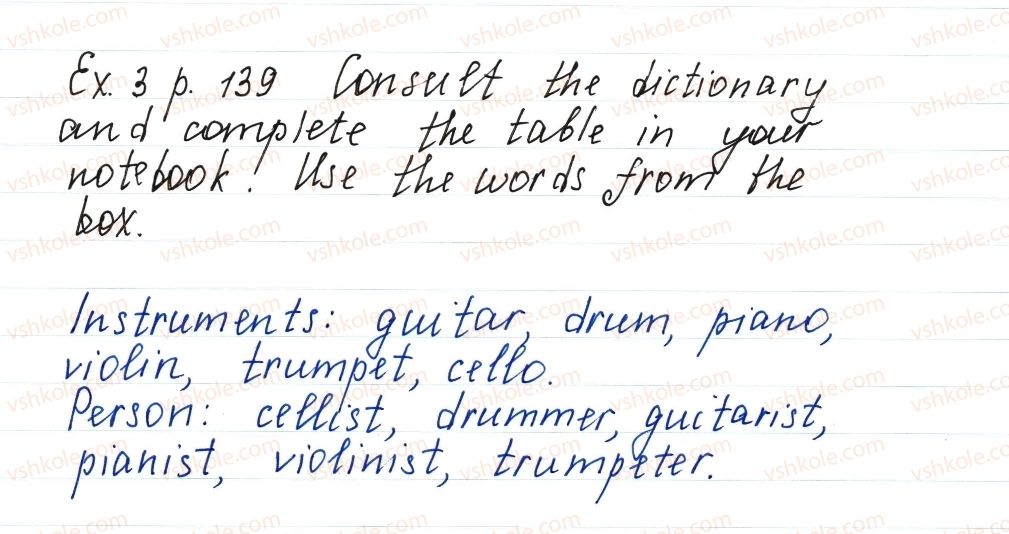 Ex. 3 p. 139 Consult the dictionary
and complete the table in your
notebook. Use the words from the
box.
Instruments: guitar, drum, piano,
violin, trumpet, cello.
Person: cellist, drummer, guitarist,
pianist, violinist, trumpeter.